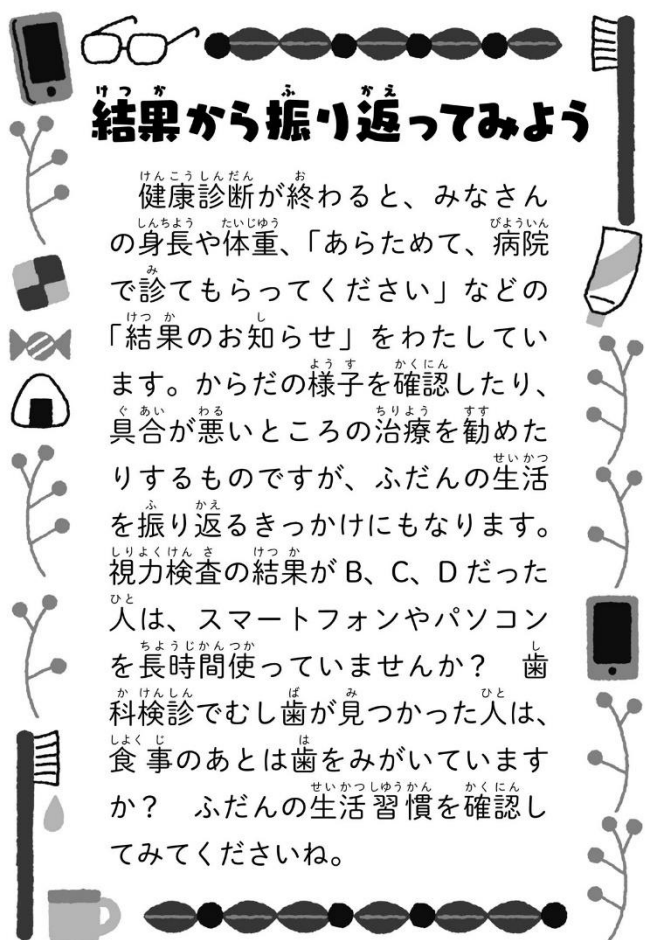 結果から振り返ってみよう
健康診断が終わると、みなさん
の身長や体重、「あらためて、病院
で診てもらってください」などの
「結果のお知らせ」をわたしてい
ます。からだの様子を確認したり、
具合が悪いところの治療を勧めた
りするものですが、ふだんの生活
を振り返るきっかけにもなります。
視力検査の結果が B、C、D だった
人は、スマートフォンやパソコン
を長時間使っていませんか？　歯
科検診でむし歯が見つかった人は、
食事のあとは歯をみがいています
か？　ふだんの生活習慣を確認し
てみてくださいね。